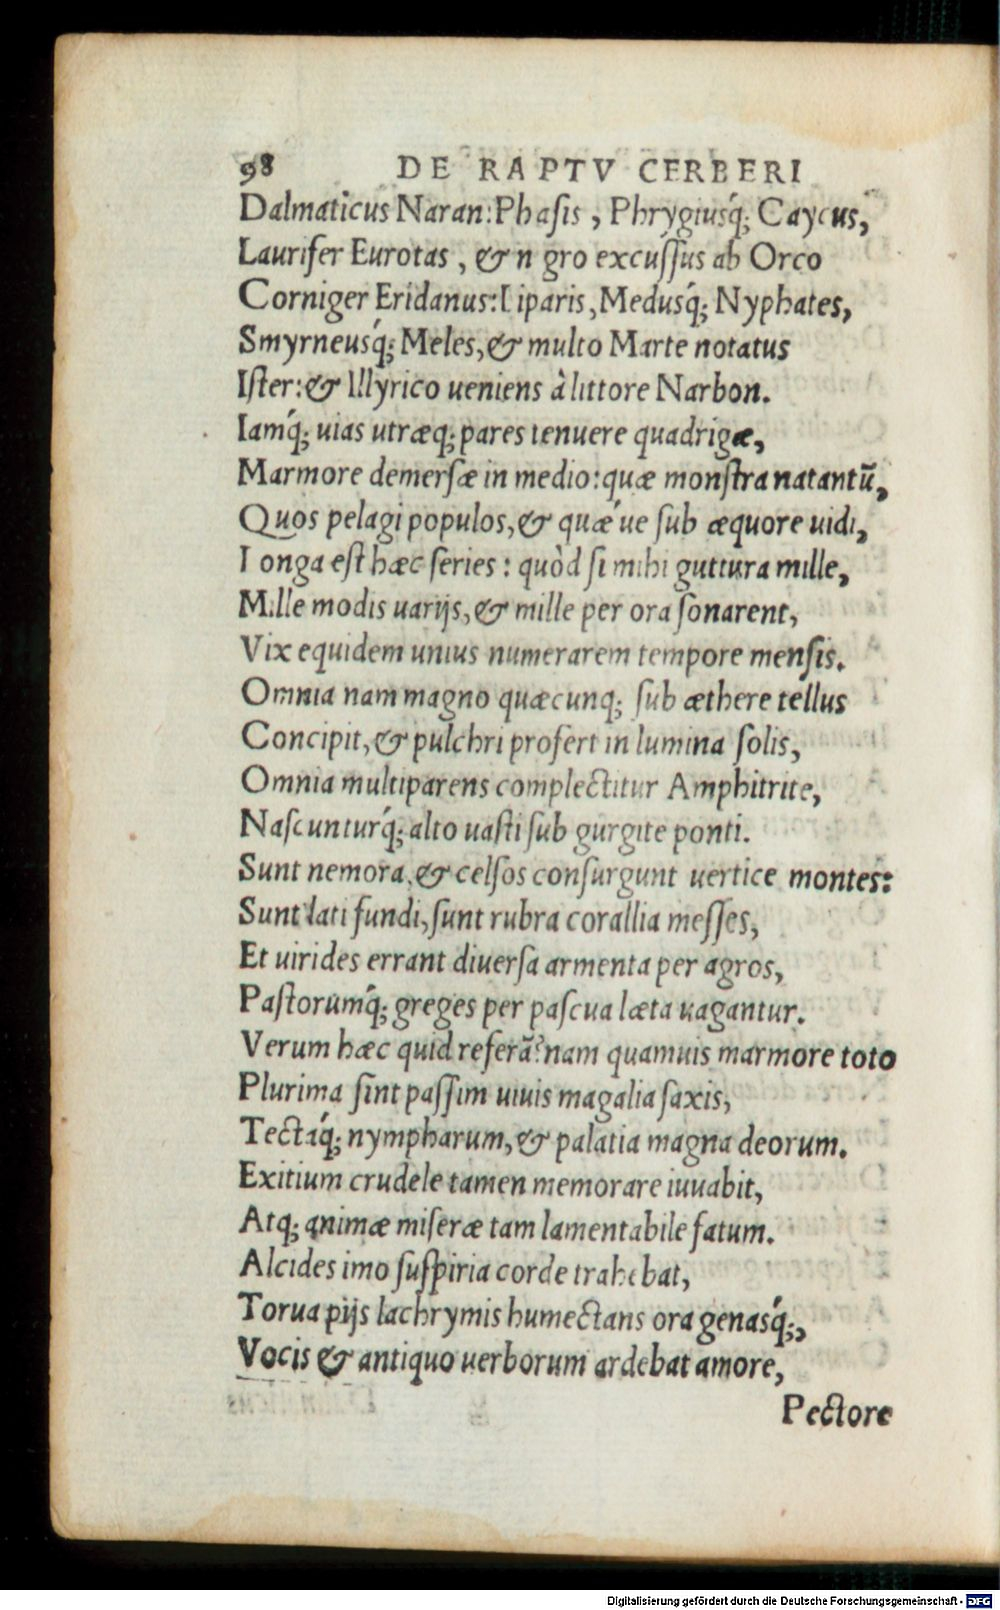 98 DE RAPTV CERBERI
Dalmaticus Naran: Phasis, Phrygiusq́; Caycus,
Laurifer Eurotas, & n gro excuſſus ab Orco
Corniger Eridanus: Liparis, Medusq́; Nyphates,
Smyrneusq́; Meles, & multo Marte notatus
Iſter: & Illyrico ueniens à littore Narbon.
Iamq́; uias utræq; pares tenuere quadrigæ,
Marmore demerſæ in medio: quæ monſtra natantũ,
Quos pelagi populos, & quæ´ue ſub æquore uidi,
Longa eſt hæc ſeries: quòd ſi mihi guttura mille,
Mille modis uarijs, & mille per ora ſonarent,
Vix equidem unius numerarem tempore menſis.
Omnia nam magno quæcunq; ſub æthere tellus
Concipit, & pulchri profert in lumina ſolis,
Omnia multiparens complectitur Amphitrite,
Naſcunturq́; alto uaſti ſub gurgite ponti.
Sunt nemora, & celſos conſurgunt uertice montes:
Sunt lati fundi, ſunt rubra corallia meſſes,
Et uirides errant diuerſa armenta per agros,
Paſtorumq́; greges per paſcua læta uagantur.
Verum hæc quid referã? nam quamuis marmore toto
Plurima ſint paſſim uiuis magalia ſaxis,
Tectaq́; nympharum, & palatia magna deorum.
Exitium crudele tamen memorare iuuabit,
Atq; animæ miſeræ tam lamentabile fatum.
Alcides imo ſuſpiria corde trahebat,
Torua pijs lachrymis humectans ora genasq́;,
Vocis & antiquo uerborum ardebat amore,
Pectore
Digitalisierung gefördert durch die Deutsche Forschungsgemeinschaft - DFG